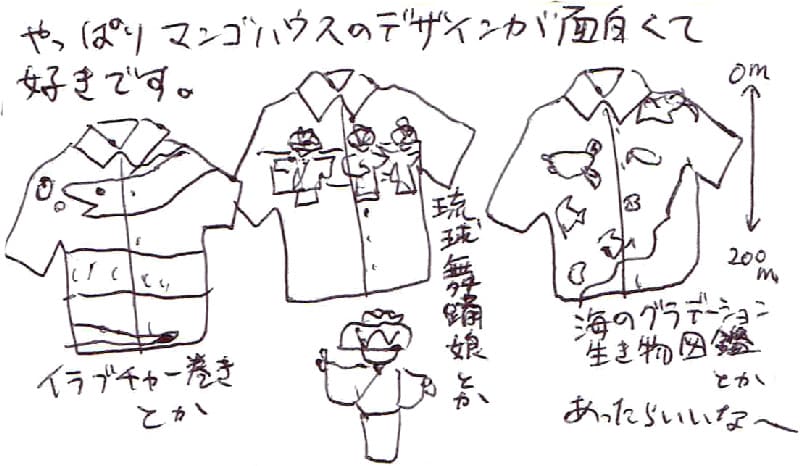 やっぱり マンゴハウスのデザインが面白くて
好きです。
イラブチャー巻き
とか
琉球舞踊娘とか
0m
200m
海のグラデーション
生き物図鑑
とか
あったらいいな〜